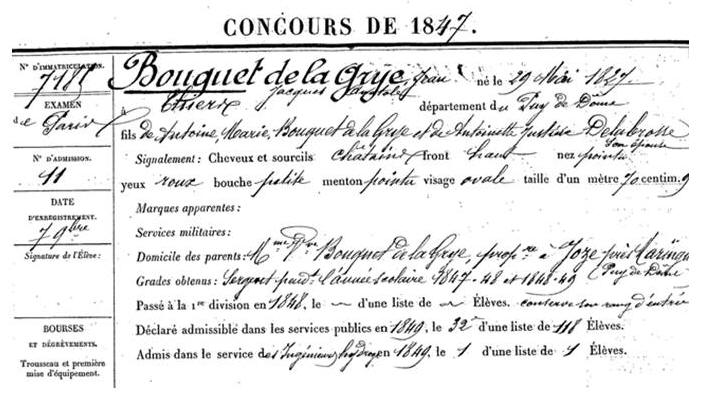 CONCOURS DE 1847.
N° D'IMMATRICULATION.
7185
EXAMEN
de Paris
N° D'ADMISSION.
11
DATE
D'ENREGISTREMENT.
7 9bre
Signature de l'Élève:
BOURSES
ET DÉGRÈVEMENTS.
Trousseau et première
mise d'équipement.
Bouquet de la Grye, Jean né le 29 Mai 1827
Jacques Anatole
à Thiers département du Puy de Dôme
fils de Antoine, Marie, Bouquet de la Grye et de Antoinette Justine Delabrosse
son épouse
Signalement: Cheveux et sourcils châtains front haut nez pointu
yeux roux bouche petite menton pointu visage ovale taille d'un mètre 70 centim. 9
Marques apparentes:
Services militaires:
Domicile des parents: Mme Vve Bouquet de la Grye, propre à Joze près Maringu
(Puy de Dôme
Grades obtenus: Sergent pendt l'année scolaire 1847-48 et 1848-49
Passé à la 1re division en 1848, le d'une liste de Élèves. conserve son rang d'entrée
Déclaré admissible dans les services publics en 1849, le 32e d'une liste de 118 Élèves.
Admis dans le service des Ingénieurs hydrog. en 1849, le 1 d'une liste de 1 Élèves.